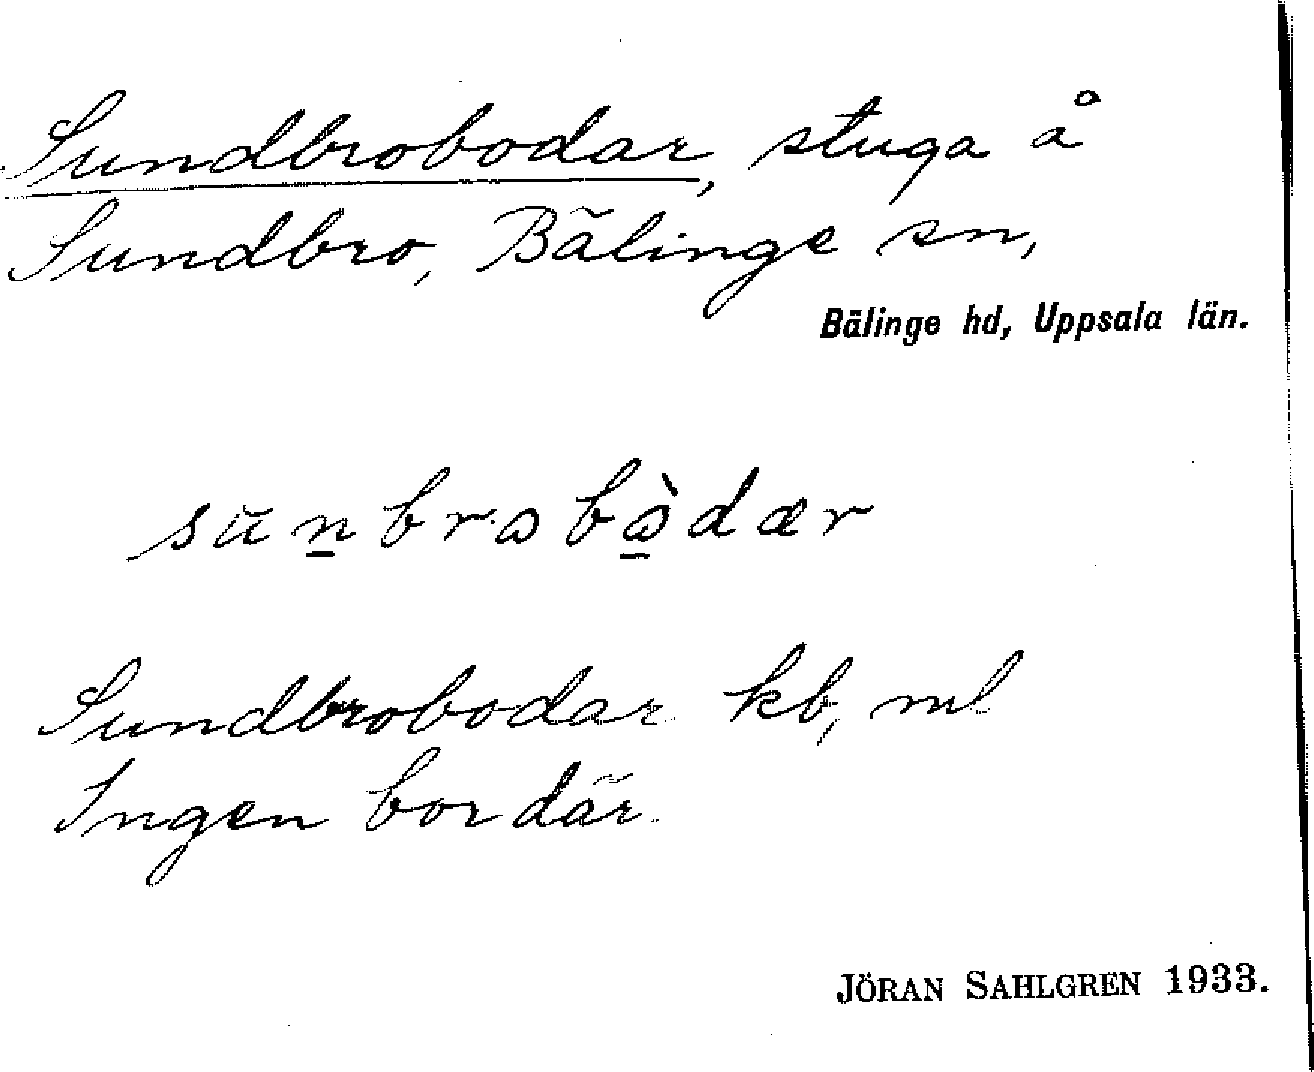 Sundbrobodar, stuga å
Sundbro, Bälinge sn,
Bälinge hd, Uppsala län.
Sundbrobodar kb, ml
Ingen bor där.
JÖRAN SAHLGREN 1933.